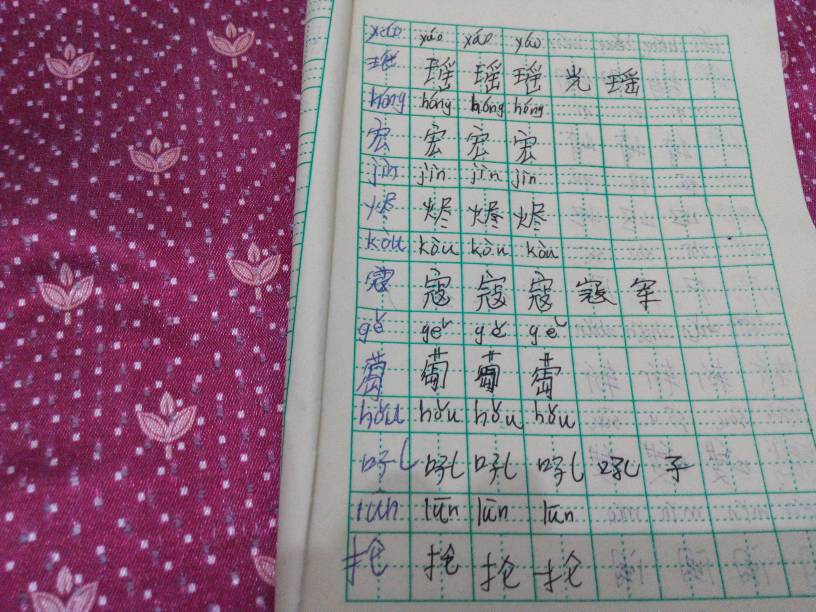 yáo yáo yáo yáo
瑶 瑶 瑶 瑶 光 瑶
hóng hóng hóng hóng
宏 宏 宏 宏
jìn jìn jìn jìn
烬 烬 烬 烬
kòu kòu kòu kòu
寇 寇 寇 寇 寇 军
gě gě gě gě
hǒu hǒu hǒu hǒu
吼 吼 吼 吼 吼 子
lūn lūn lūn lūn
抡 抡 抡 抡